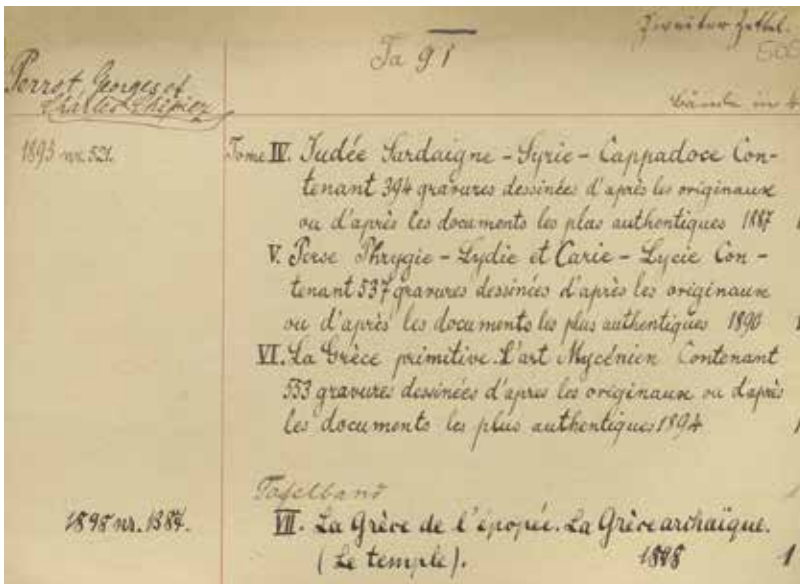 Zweiter Zettel.
Ia 91
Perrot, Georges et
Charles Chipiez
Bände in 4
1893 nr. 521.
Tome IV. Judée Sardaigne - Syrie - Cappadoce Con-
tenant 394 gravures dessinées d'après les originaux
ou d'après les documents les plus authentiques 1887
V. Perse Phrygie - Lydie et Carie - Lycie Con-
tenant 537 gravures dessinées d'après les originaux
ou d'après les documents les plus authentiques 1890
VI. La Grèce primitive. L'art Mycénien Contenant
553 gravures dessinées d'apres les originaux ou d'après
les documents les plus authentiques 1894
Tafelband
1898 nr. 1384.
VII. La Grèce de l'épopée. La Grèce archaïque.
(Le temple). 1898 1